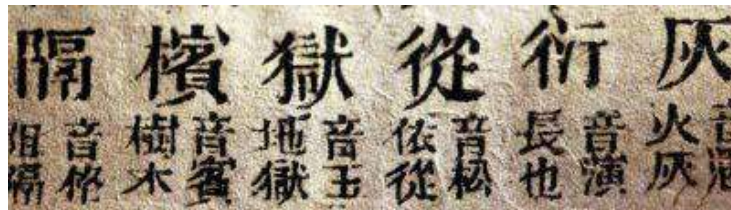 灰
火灰
衍
音演
長也
從
音松
依從
獄
音玉
地獄
檳
音賓
樹木
隔
音格
阻隔